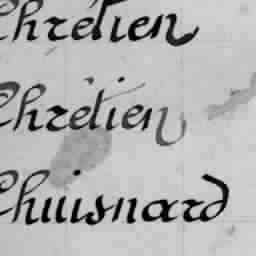 Chrétien
Chrétien
Chuisnard